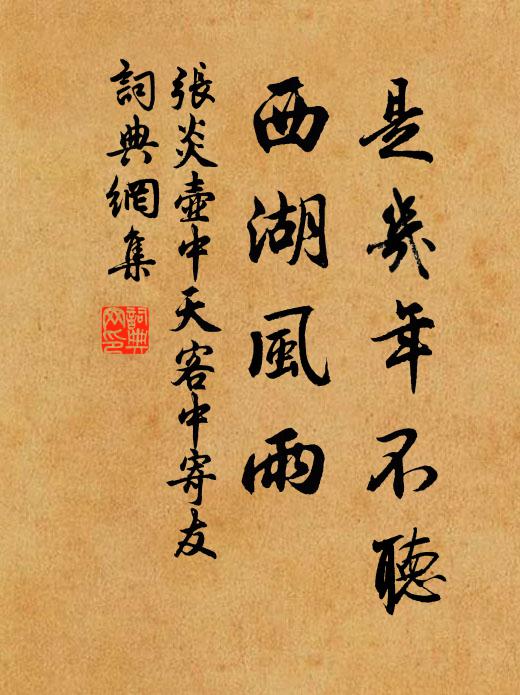 是幾年不聽
西湖風雨
張炎壺中天客中寄友
詞典網集
詞典網印